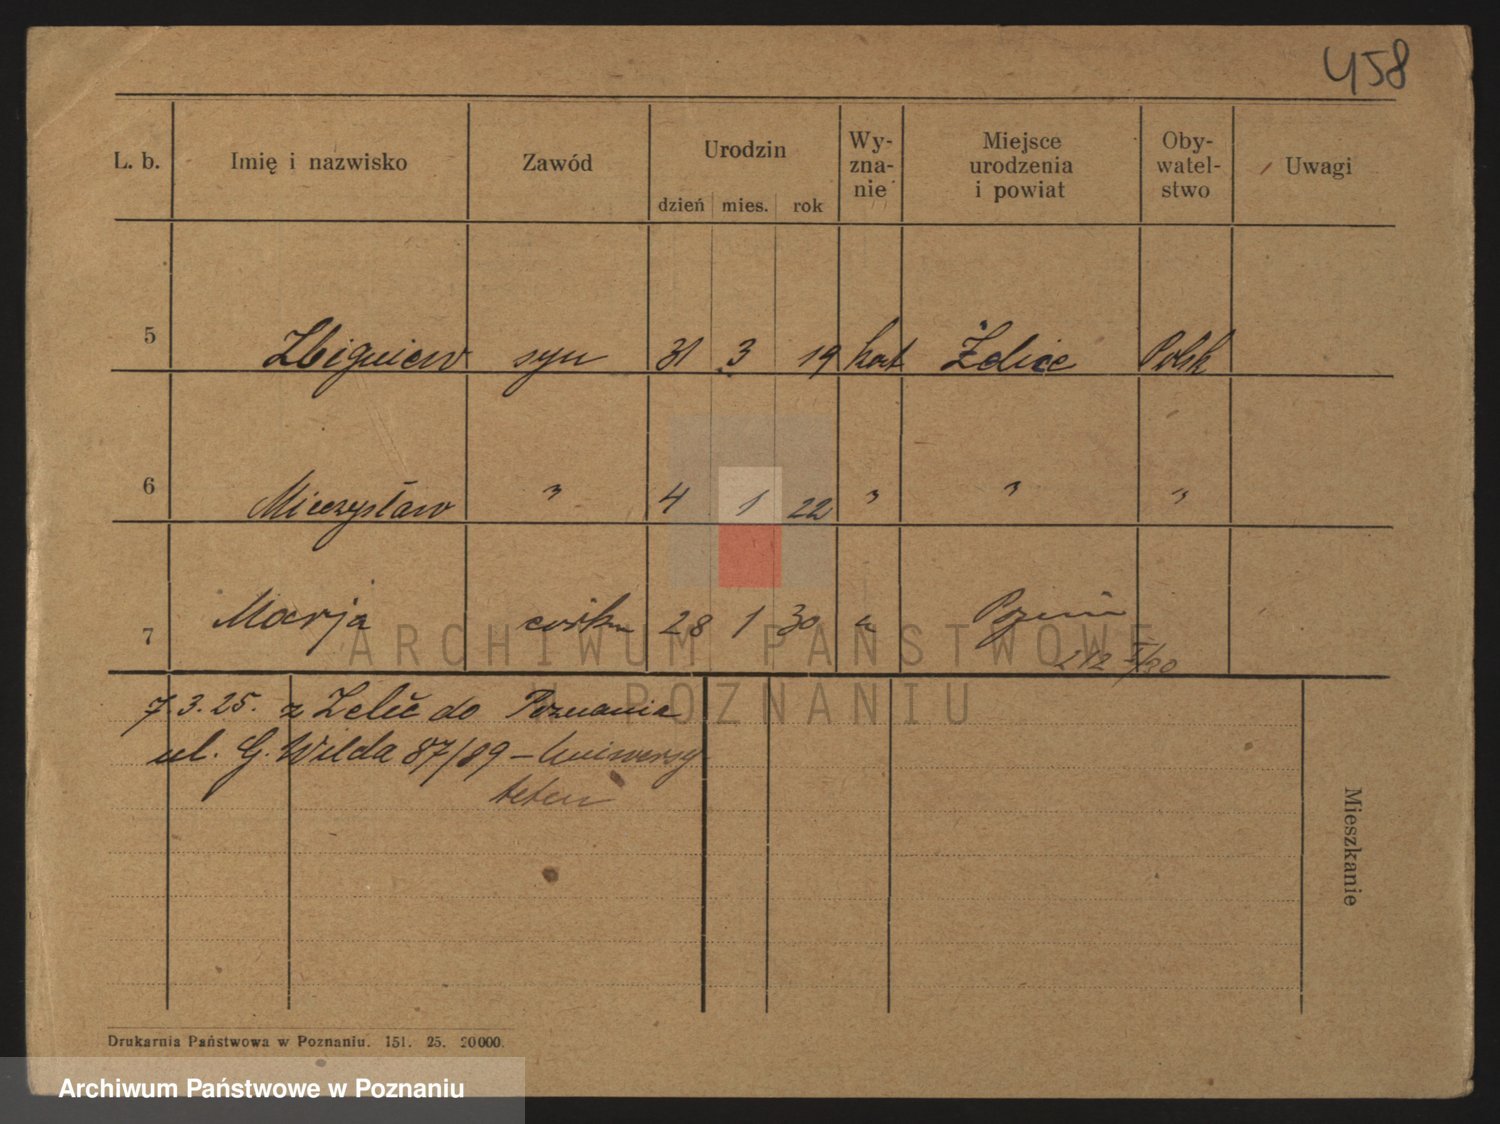 458
L. b. Imię i nazwisko Zawód Urodzin dzień mies. rok Wy-zna-nie Miejsce urodzenia i powiat Oby-watel-stwo Uwagi
5 Zbigniew syn 31 3 19 kat Żelice Polsk
6 Mieczysław " 4 1 22 " " "
7 Marja córka 28 1 30 "
7.3.25. z Zelic do Poznania
ul. G. Wilda 87/89 – Uniwersy-
tetu
Mieszkanie
Drukarnia Państwowa w Poznaniu. 151. 25. 20000.
ARCHIWUM PAŃSTWOWE
W POZNANIU
Archiwum Państwowe w Poznaniu